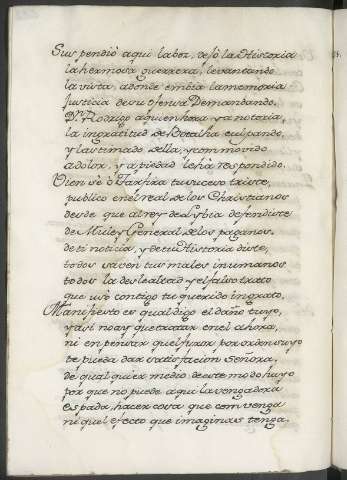 Suspendió aqui la boz, dexó la Historia
la hermosa guerrera, levantando
la vista, adonde embia la memoria
Justicia de su ofensa Demandando.
D.n Rodrigo aquien hera ya notoria,
la ingratitud de Botalha culpando,
y lastimado della, y commovido
á dolor, y a piedad le ha respondido.
Bien sé ó Tarfira tu suceso triste,
publico en el real de los Christianos
desde que al rey de Lybia defendiste
de Muley General de los paganos.
de ti noticia, y de tu Historia diste,
todos saven tus males inumanos
todos la deslealtad y el falso trato
que usó contigo tu querido ingrato.
Manifiesto es qual digo el daño tuyo,
y assi no ay que tratar en el ahora,
ni en pensar que el furor por orden suyo
te pueda dar satisfacion señora,
de qualquier medio de este modo huyo
por que no puede aqui la vengadora
espada, hacer cosa que convenga
ni que efecto que imaginais tenga.